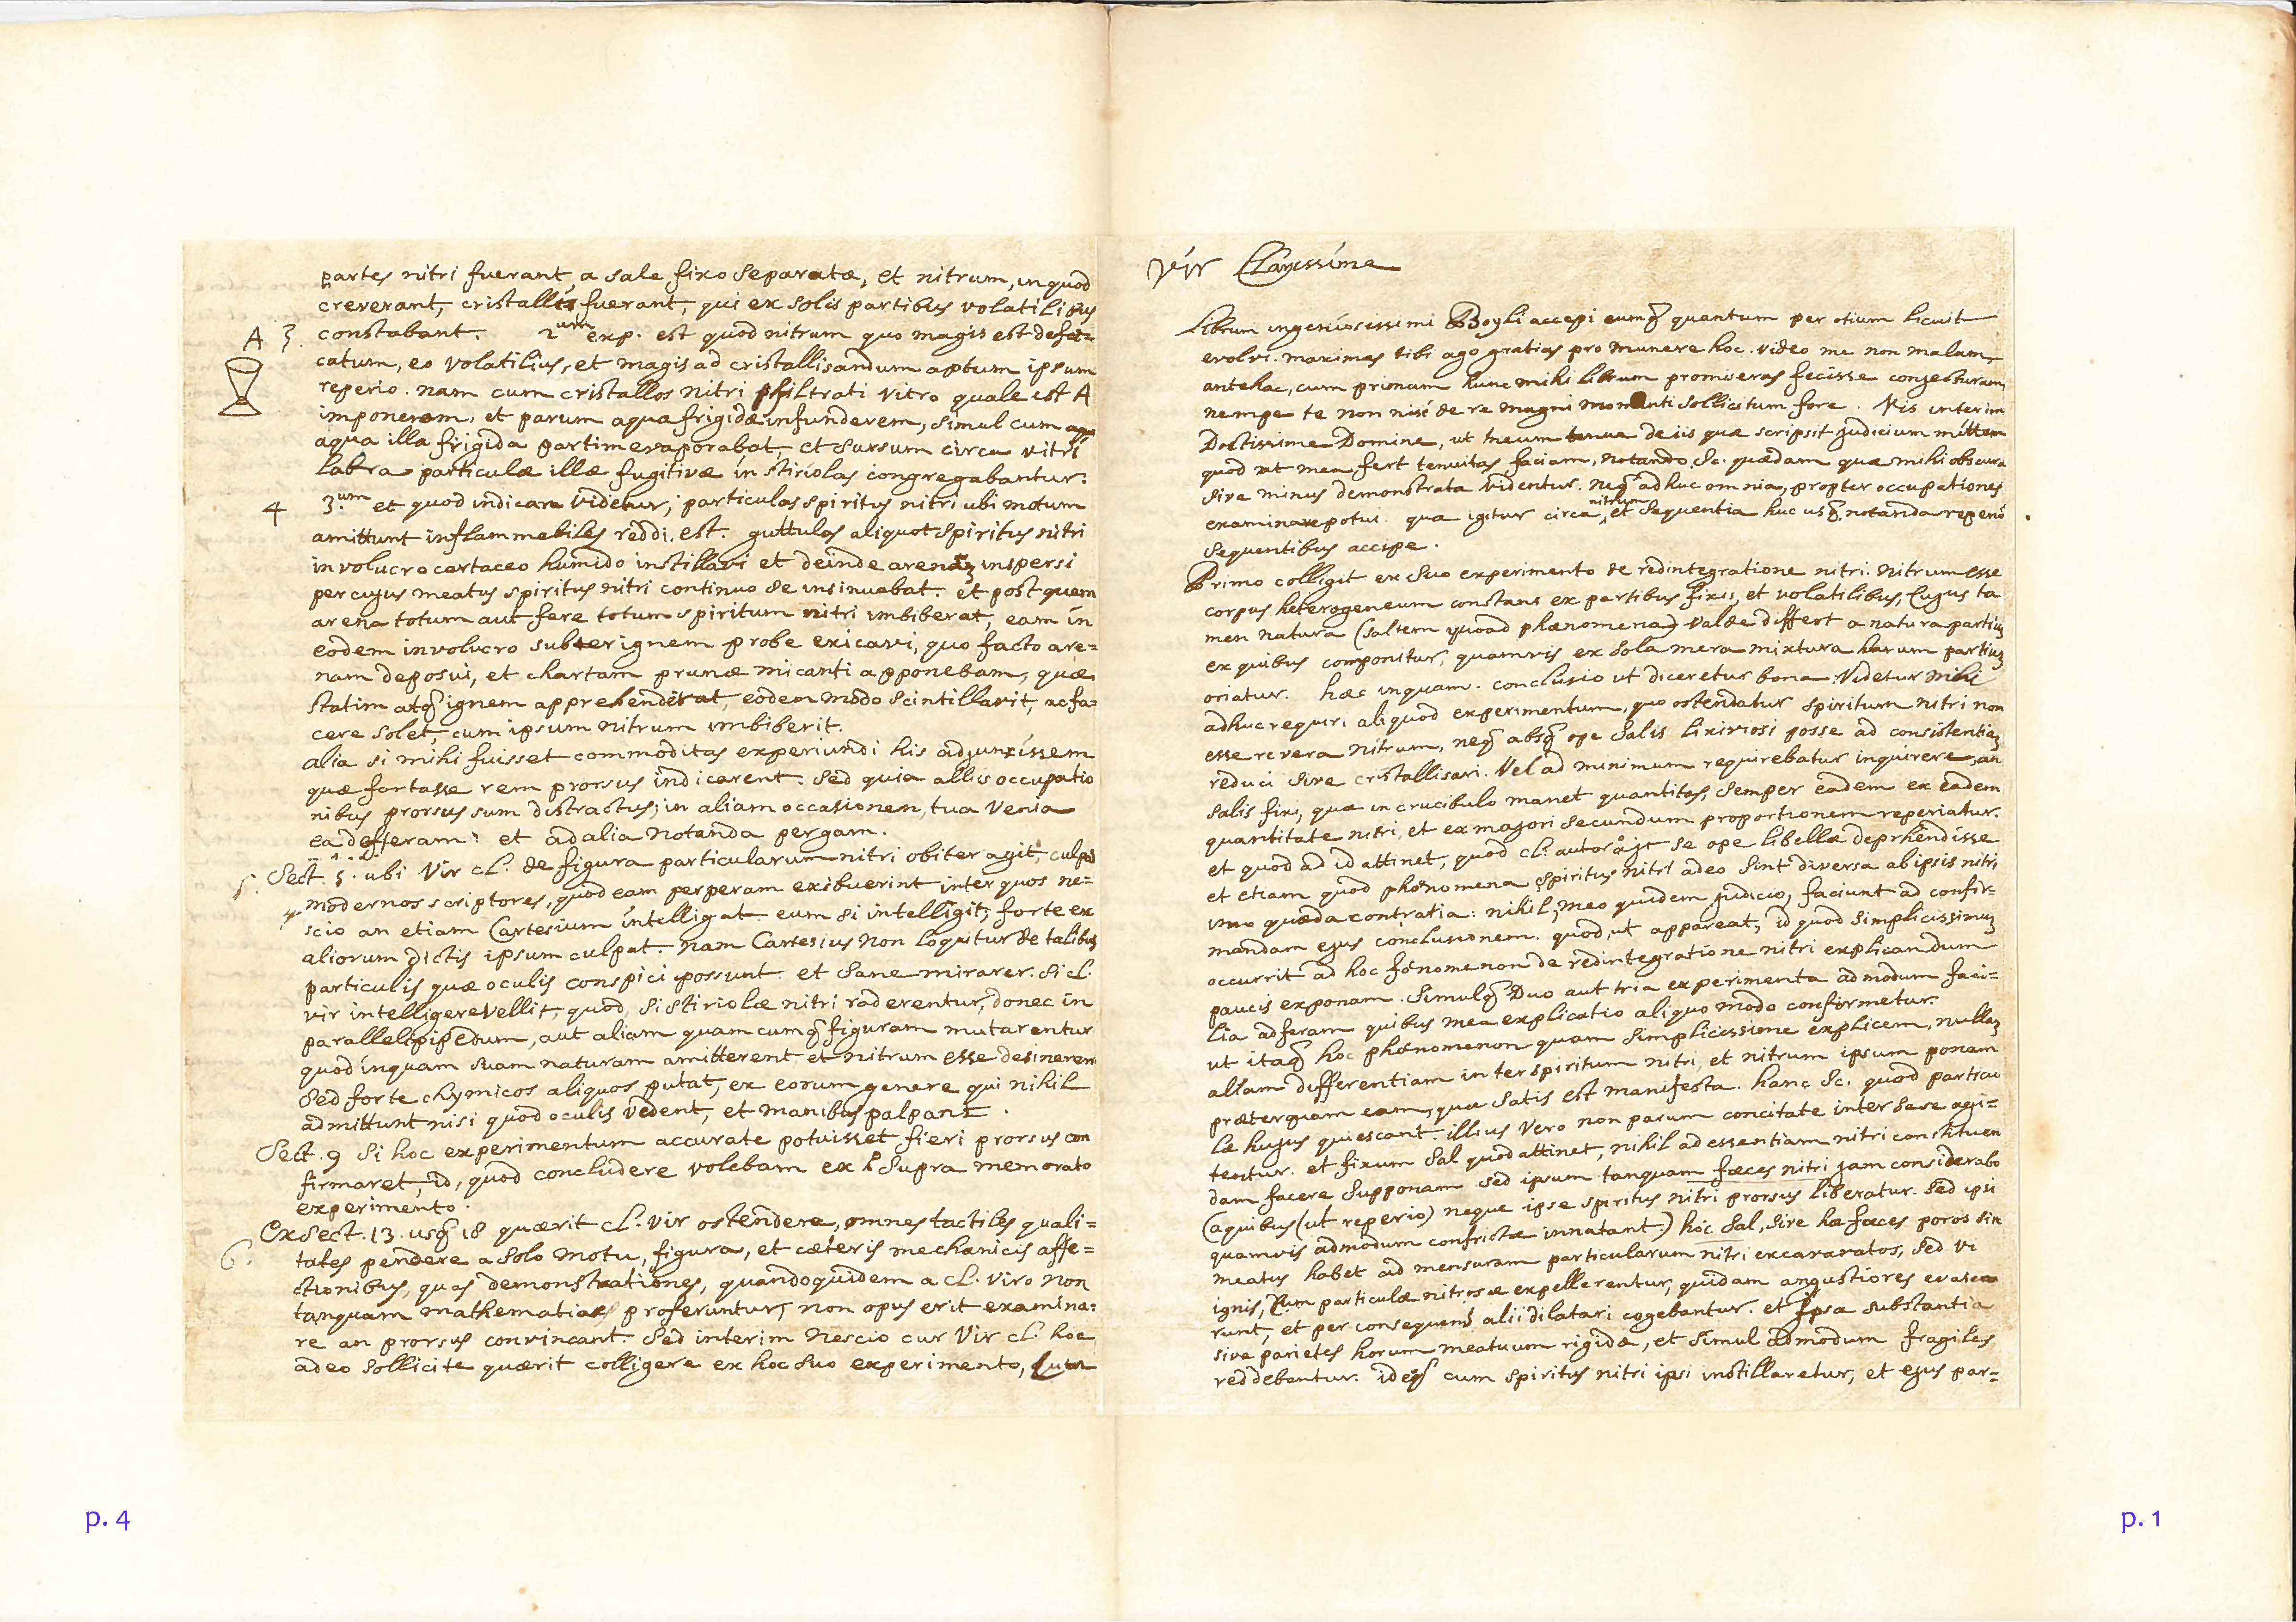 partes nitri fuerant a sale fixo separatæ, et nitrum, in quod
creverant, cristalli fuerant, qui ex solis partibus volatilibus
A 3. constabant. 2um exp. est quod nitrum quo magis est defæ=
catum, eo volatilius, et magis ad cristallisandum aptum ipsum
reperio. nam cum cristallos nitri philtrati vitro quale est A
imponerem, et parum aquæ frigidæ infunderem, simul cum
aqua illa frigida partim evaporabat, et sursum circa vitri
labra particulæ illæ fugitivæ in stiriolas congregabantur.
4 3.um et quod indicare videtur, particulas spiritus nitri ubi motum
amittunt inflammebiles reddi, est. guttulas aliquot spiritus nitri
involucro cartaceo humido instillavi et deinde arenam inspersi
per cujus meatus spiritus nitri continuo se insinuabat. et post quam
arena totum aut fere totum spiritum nitri imbiberat, eam in
eodem involucro subter ignem probe exicavi, quo facto are=
nam deposui, et chartam prunæ micanti apponebam, quæ
statim atq ignem apprehenderat, eodem modo scintillavit, ac fa=
cere solet, cum ipsum nitrum imbiberit.
alia si mihi fuisset commoditas experiundi his adjunxissem
quæ fortasse rem prorsus indicarent. sed quia allis occupatio
nibus prorsus sum distractus; in aliam occasionem, tua venia
ea defferam: et ad alia notanda pergam.
5. Sect. 5. ubi Vir cl. de figura particularum nitri obiter agit, culpat
modernos scriptores, quod eam perperam exibuerint inter quos ne=
scio an etiam Cartesium intelligat. eum si intelligit, forte ex
aliorum dictis ipsum culpat. nam Cartesius non loquitur de talibus
particulis quæ oculis conspici possunt. et sane mirarer. si cl.
vir intelligere vellit, quod, si stiriolæ nitri raderentur, donec in
parallelipipedum, aut aliam quamcumq figuram mutarentur
quod inquam suam naturam amitterent et nitrum esse desineren
sed forte chymicos aliquos putat, ex eorum genere qui nihil
admittunt nisi quod oculis vident, et manibus palpant.
Sect. 9 Si hoc experimentum accurate potuisset fieri prorsus con
firmaret, id, quod concludere volebam ex 1° supra memorato
experimento.
6. Ex sect. 13. usq 18 quærit cl. vir ostendere, omnes tactiles quali=
tates pendere a solo motu, figura, et cæteris mechanicis affe=
ctionibus, quas demonstrationes, quandoquidem a cl. viro non
tanquam mathematicæ proferuntur, non opus erit examina=
re an prorsus convincant. Sed interim nescio cur Vir cl. hoc
adeo sollicite quærit colligere ex hoc suo experimento,
p. 4
Vir Clarissime
Librum ingeniosissimi Boyli accepi eumq quantum per otium licuit
evolvi. maximas tibi ago gratias pro munere hoc. video me non malam
antehac, cum primum hunc mihi librum promiseras fecisse conjecturam,
nempe te non nisi de re magni momenti sollicitum fore. Vis interim
Doctissime Domine, ut meum tenue de iis quæ scripsit judicium mittam
quod ut mea fert tenuitas faciam, notando sc. quædam quæ mihi obscura
sive minus demonstrata videntur. neq adhuc omnia, propter occupationes
examinare potui. quæ igitur circa nitrum, et sequentia huc usq notanda reperio
sequentibus accipe.
Primo colligit ex suo experimento de redintegratione nitri. Nitrum esse
corpus heterogeneum constans ex partibus fixis, et volatilibus, Cujus ta
men natura (saltem quoad phænomena) valde differt a natura partium
ex quibus componitur, quamvis ex sola mera mixtura harum partium
oriatur. hæc inquam. conclusio ut diceretur bona. Videtur mihi
adhuc requiri aliquod experimentum, quo ostendatur spiritum nitri non
esse revera nitrum, neq absq ope salis lixiviosi posse ad consistentiam
reduci sive cristallisari. Vel ad minimum requirebatur inquirere, an
salis fixi, quæ in crucibulo manet quantitas, semper eadem ex eadem
quantitate nitri, et ex majori secundum proportionem reperiatur.
et quod ad id attinet, quod cl. autor ajt se ope libellæ deprhendisse
et etiam quod phænomena spiritus nitri adeo sint diversa ab ipsis nitri
imo quæda contratia: nihil, meo quidem judicio, faciunt ad confir-
mandam ejus conclusionem. quod, ut appareat, id quod simplicissimum
occurrit ad hoc fœnomenon de redintegratione nitri explicandum
paucis exponam. Simulq Duo aut tria experimenta admodum faci=
lia adferam quibus mea explicatio aliquo modo confirmetur.
ut itaq hoc phænomenon quam simplicissime explicem, nullam
aliam differentiam inter spiritum nitri, et nitrum ipsum ponam
præterquam eam, quæ satis est manifesta. hanc sc. quod particu
læ hujus quiescant. illius vero non parum concitatæ inter sese agi=
tentur. et fixum sal quod attinet, nihil ad essentiam nitri constituen
dam facere supponam sed ipsum tanquam fæces nitri jam considerabo
(a quibus (ut reperio) neque ipse spiritus nitri prorsus liberatur. sed ipsi
quamvis admodum confrictæ innatant.) hoc sal, sive hæ fæces poros sive
meatus habet ad mensuram particularum nitri excavaratos, sed vi
ignis, Cum particulæ nitrosæ expellerentur, quidam angustiores evase
runt, et per consequens alii dilatari cogebantur. et ipsa substantia
sive parietes horum meatuum rigidæ, et simul admodum fragiles
reddebantur. ideoq cum spiritus nitri ipsi instillaretur, et ejus par=
p. 1